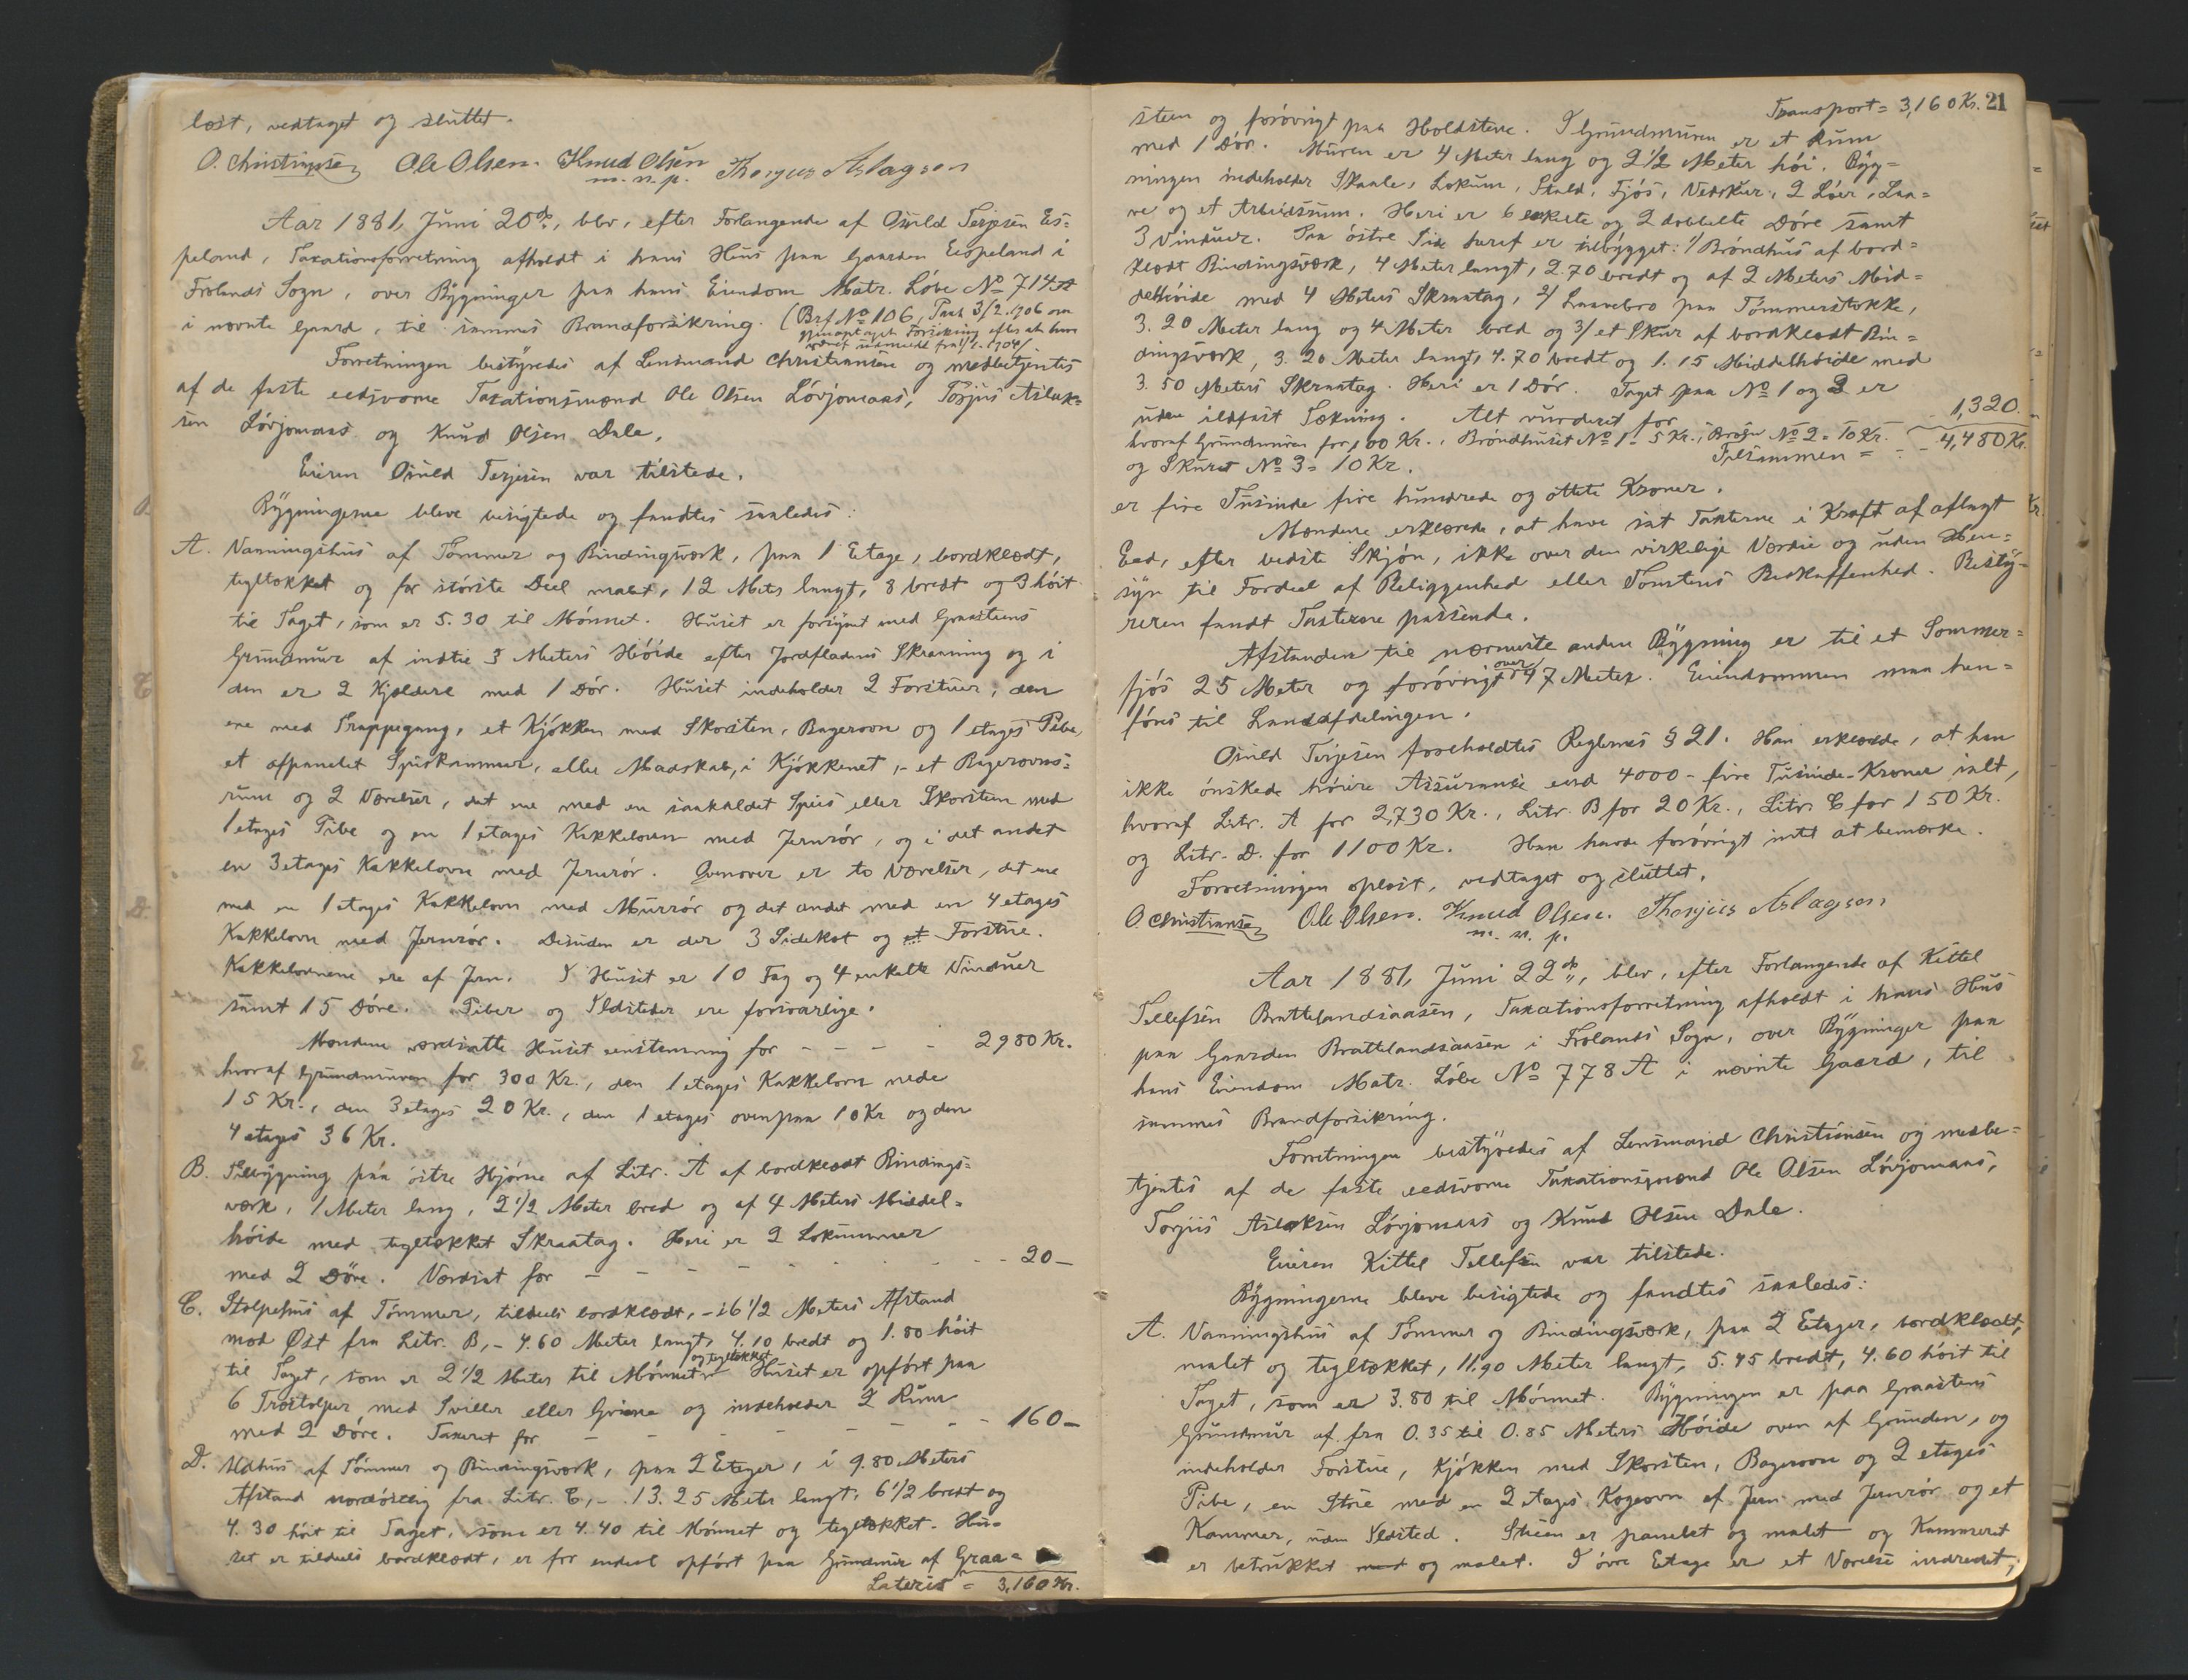 læst, vedtaget og sluttet.
O. Christiansen Ole Olsen. Knud Olsen Thorjus Aslagson
m. n. p.
Aar 1881, Juni 20de, blev, efter Forlangende af Osuld Terjesen Es=
peland, Taxationsforretning afholdt i hans Hus paa Gaarden Espeland i
Frolands Sogn, over Bygninger paa hans Eiendom Matr. Løbe No 714 A
i nævnte Gaard, til sammes Brandforsikring. (Brf No 106, Pak 3/2.1906 om
gjenoptaget Forsikring efter at have
været udmeldt fra 1/1.1904)
Forretningen bestyredes af Lensmand Christiansen og medbetjentes
af de faste eedsvorne Taxationsmænd Ole Olsen Løvjomaas, Torjus Aslak=
sen Løvjomaas og Knud Olsen Dale.
Eieren Osuld Terjesen var tilstede.
Bygningerne bleve besigtede og fandtes saaledes:
A. Vaaningshus af Tømmer og Bindingsværk, paa 1 Etage, bordklædt,
tegltækket og for største Deel malet, 12 Meter langt, 8 bredt og 3 høit
til Taget, som er 5.30 til Mønnet. Huset er forsynet med Graasteens
Grundmur af indtil 3 Meters Høide efter Jordfladens Skraaning og i
den er 2 Kjældere med 1 Dør. Huset indeholder 2 Forstuer, den
ene med Trappegang, et Kjøkken med Skorsten, Bagerovn og 1 etages Pibe,
et afpanelet Spiskammer, eller Madskab, i Kjøkkenet, - et Bagerovns=
rum og 2 Værelser, det ene med en saakaldet Spiis eller Skorsteen med
1 etages Pibe og en 1 etages Kakkelovn med Jernrør, og i det andet
en 3 etages Kakkelovn med Jernrør. Ovenover er to Værelser, det ene
med en 1 etages Kakkelovn med Murrør og det andet med en 4 etages
Kakkelovn med Jernrør. Desuden er der 3 Sidekot og et Forstue.
Kakkelovnene ere af Jern. I Huset er 10 Fag og 4 enkelte Vinduer
samt 15 Døre. Piber og Ildsteder ere forsvarlige.
Mændene værdsatte Huset eenstemmig for - - - - 2980 Kr.
hvoraf Grundmuren for 300 Kr., den 1 etages Kakkelovn nede
15 Kr., den 3 etages 20 Kr., den 1 etages ovenpaa 10 Kr og den
4 etages 36 Kr.
B. Tilbygning paa østre Hjørne af Litr. A af bordklædt Bindings=
værk, 1 Meter lang, 2 1/2 Meter bred og af 4 Meters Middel=
høide med tegltækket Skraatag. Heri er 2 Lokummer
med 2 Døre. Værdsat for - - - - - - - 20 -
C. Stolpehus af Tømmer, tildeels bordklædt, - i 6 1/2 Meters Afstand
mod Øst fra Litr. B, - 4.60 Meter langt, 4.10 bredt og 1.80 høit
til Taget, som er 2 1/2 Meter til Mønnet og tegltækket. Huset er opført paa
6 Træstolper med Sviller eller Grinne og indeholder 2 Rum
med 2 Døre. Taxeret for - - - - - 160 -
D. Udhus af Tømmer og Bindingsværk, paa 2 Etager, i 9.80 Meters
Afstand nordøstlig fra Litr. C, - 13.25 Meter langt, 6 1/2 bredt og
4.30 høit til Taget, som er 4.40 til Mønnet og tegltækket. Hu=
set er tildeels bordklædt, er for endeel opført paa Grundmur af Graa=
Lateris = 3,160 Kr.
Transport = 3,160 Kr. 21
steen og forøvrigt paa Holdstene. I Grundmuren er et Rum
med 1 Dør. Muren er 4 Meter lang og 2 1/2 Meter høi. Byg=
ningen indeholder Skaale, Lokum, Stald, Fjøs, Vedskur, 2 Løer, Laa=
ve og et Arbeidsrum. Heri er 6 enkelte og 2 dobbelte Døre samt
3 Vinduer. Paa østre Side heraf er tilbygget: 1/ Brøndhus af bord=
klædt Bindingsværk, 4 Meter langt, 2.70 bredt og af 2 Meters Mid=
delhøide med 4 Meters Skraatag, 2/ Laavebro paa Tømmerstokke,
3.20 Meter lang og 4 Meter bred og 3/ et Skur af bordklædt Bin=
dingsværk, 3.20 Meter langt, 4.70 bredt og 1.15 Middelhøide med
3.50 Meters Skraatag. Heri er 1 Dør. Taget paa No 1 og 3 er
uden ildfast Tækning. Alt vurderet for 1,320. -
hvoraf Grundmuren for 100 Kr., Brøndhuset No 1 = 5 Kr., Broen No 2 = 10 Kr.
og Skuret No 3 = 10 Kr. Tilsammen = - - 4,480 Kr.
er fire Tusinde fire hundrede og otteti Kroner.
Mændene erklærede, at have sat Taxterne i Kraft af aflagt
Eed, efter bedste Skjøn, ikke over den virkelige Værdie og uden Hen=
syn til Fordeel af Beliggenhed eller Tomtens Beskaffenhed. Besty=
reren fandt Taxterne passende.
Afstanden til nærmeste anden Bygning er til et Sommer=
fjøs 25 Meter og forøvrigt over 47 Meter. Eiendommen maa hen=
føres til Landafdelingen.
Osuld Terjesen foreholdtes Reglernes § 21. Han erklærede, at han
ikke ønskede høiere Assurance end 4000 - fire Tusinde - Kroner ialt,
hvoraf Litr. A for 2,730 Kr., Litr. B for 20 Kr., Litr. C for 150 Kr.
og Litr. D. for 1100 Kr. Han havde forøvrigt intet at bemærke.
Forretningen oplæst, vedtaget og sluttet.
O. Christiansen Ole Olsen. Knud Olsen. Thorjus Aslagson
m. n. p.
Aar 1881, Juni 22de, blev, efter Forlangende af Kittel
Tellefsen Brattelandsaasen, Taxationsforretning afholdt i hans Hus
paa Gaarden Brattelandsaasen i Frolands Sogn, over Bygninger paa
hans Eiendom Matr. Løbe No 778 A i nævnte Gaard, til
sammes Brandforsikring.
Forretningen bestyredes af Lensmand Christiansen og medbe=
tjentes af de faste eedsvorne Taxationsmænd Ole Olsen Løvjomaas,
Torjus Aslaksen Løvjomaas og Knud Olsen Dale.
Eieren Kittel Tellefsen var tilstede.
Bygningerne bleve besigtede og fandtes saaledes:
A. Vaaningshus af Tømmer og Bindingsværk, paa 2 Etager, bordklædt,
malet og tegltækket, 11.90 Meter langt, 5.45 bredt, 4.60 høit til
Taget, som er 3.80 til Mønnet. Bygningen er paa Graasteens
Grundmur af fra 0.35 til 0.85 Meters Høide oven af Grunden, og
indeholder Forstue, Kjøkken med Skorsten, Bagerovn og 2 etages
Pibe, en Stue med en 2 etages Kogeovn af Jern med Jernrør og et
Kammer, uden Ildsted. Stuen er panelet og malet og Kammeret
er betrukket med og malet. I øvre Etage er et Værelse indredet,